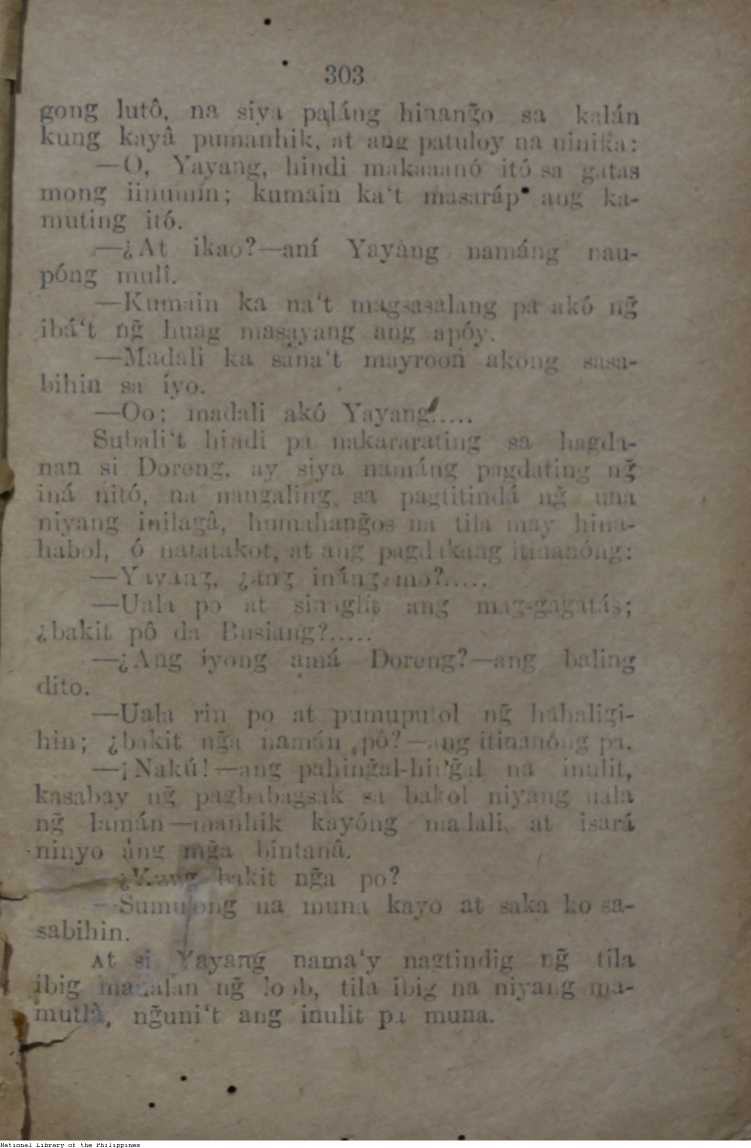 303
gong lutô, na siya paláng hinang̃o sa kalán
kung kayâ pumanhik, at ang patuloy na winika:
—O, Yayang, hindi makaaanó itó sa gatas
mong iinumin; kumain ka‘t masaráp ang ka-
muting itó.
—¿At ikao?—aní Yayang namáng nau-
póng mulî.
—Kumain ka na‘t magsasalang pa akó ng̃
ibá‘t ng̃ huag masayang ang apóy.
—Madali ka sana‘t mayroon akong sasa-
bihin sa iyo.
—Oo; madali akó Yayang!....
Subali‘t hindi pa nakararating sa hagda-
nan si Doreng, ay siya namáng pagdating ng̃
iná nitó, na nangaling sa pagtitindá ng̃ una
niyang inilagâ, humahang̃os na tila may hina-
habol, ó natatakot, at ang pagdakaang itinanóng:
—Yayang, ¿ang ináng mo?.....
—Uala po at sinaglit ang mag-gagatás;
¿bakit pô da Busiang?.....
—¿Ang iyong amá Doreng?—ang baling
dito.
—Uala rin po at pumuputol ng̃ hahaligi-
hin; ¿bakit ng̃a namán pô?—ang itinanóng pa.
—¡Nakú!—ang pahing̃al-hing̃al na inulit,
kasabay ng̃ pagbabagsak sa bakol niyang uala
ng̃ lamán—manhik kayóng madali, at isará
ninyo ang mg̃a bintanâ.
bakit ng̃a po?
—Sumulong na muna kayo at saka ko sa-
sabihin.
At si Yayang nama‘y nagtindig ng̃ tila
ibig ng̃ loob, tila ibig na niyang ma-
mutlâ, ng̃uni‘t ang inulit pa muna.
National Library of the Philippines